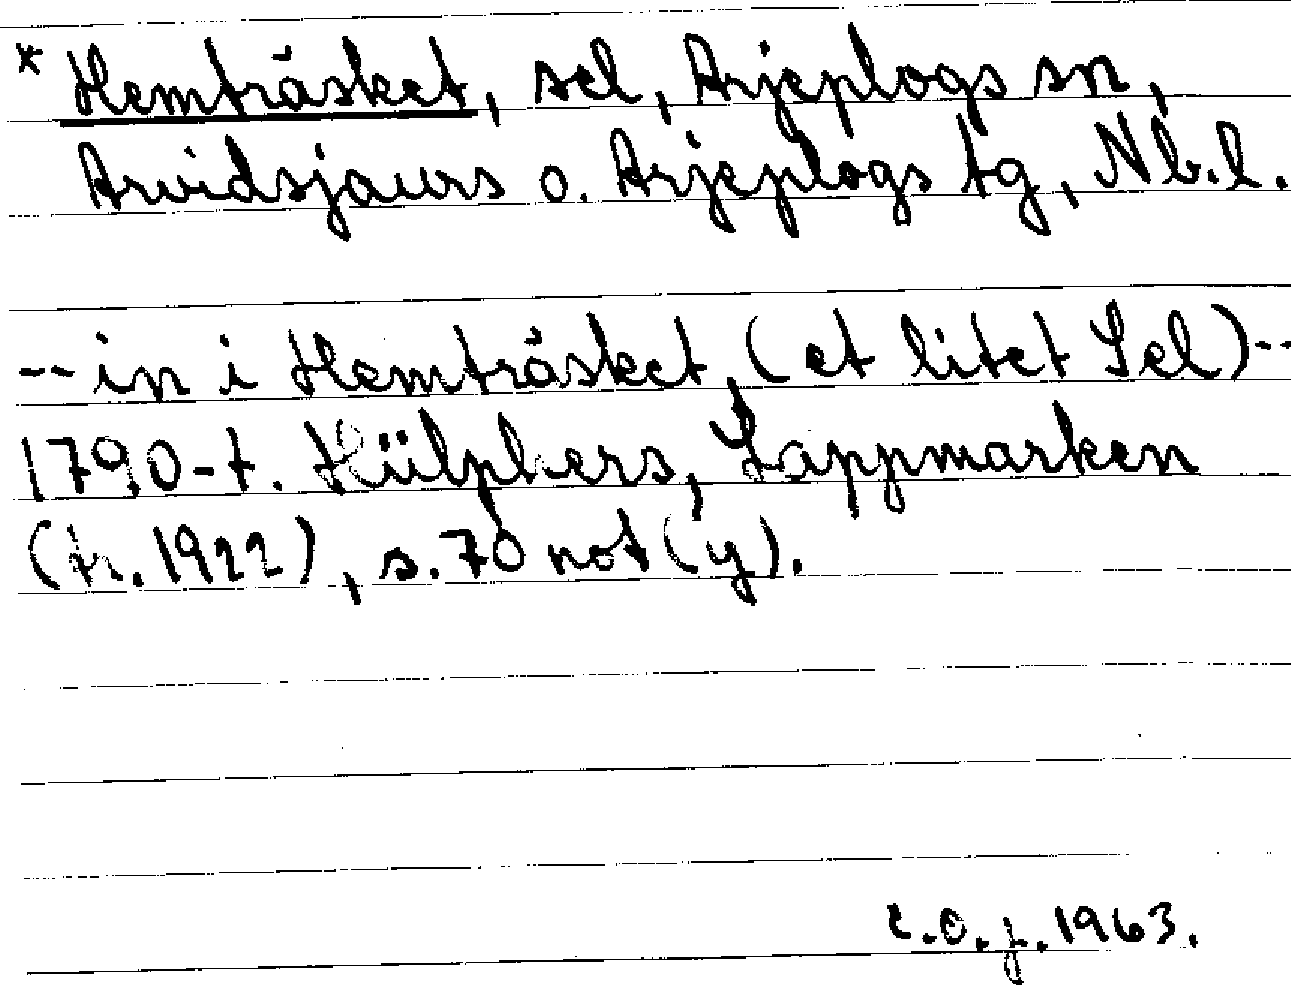 * Hemträsket, sel, Arjeplogs sn,
Arvidsjaurs o. Arjeplogs tg, Nb.l.
-- in i Hemträsket, (et litet Sel) --
1790-t. Hülphers, Lappmarken
(tr. 1922), s. 70 not (y).
C.O.J. 1963.